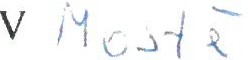 v Mostě